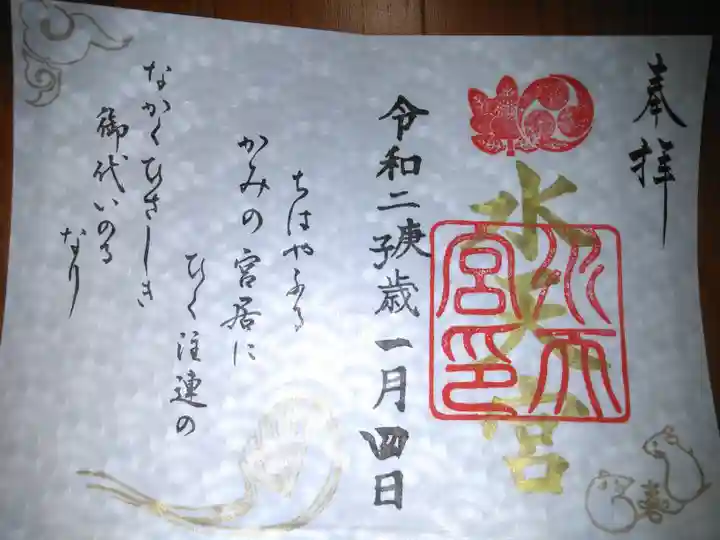 奉拝
水天宮
水天宮印
令和二庚子歳一月四日
ちはやふる
かみの宮居に
ひく注連の
なかくひさしき
御代いのる
なり
寿